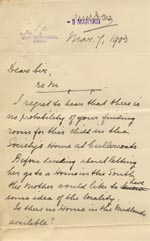 9 MAR 1903
Mar. 7, 1903
Dear Sir,
re M
I regret to hear that there is
no probability of your finding
room for this child in the
Society's Home at Cullercoats.
Before deciding about letting
her go to a Home in the South
the mother would like to have
some idea of the locality.
Is there no Home in the Midlands
available?